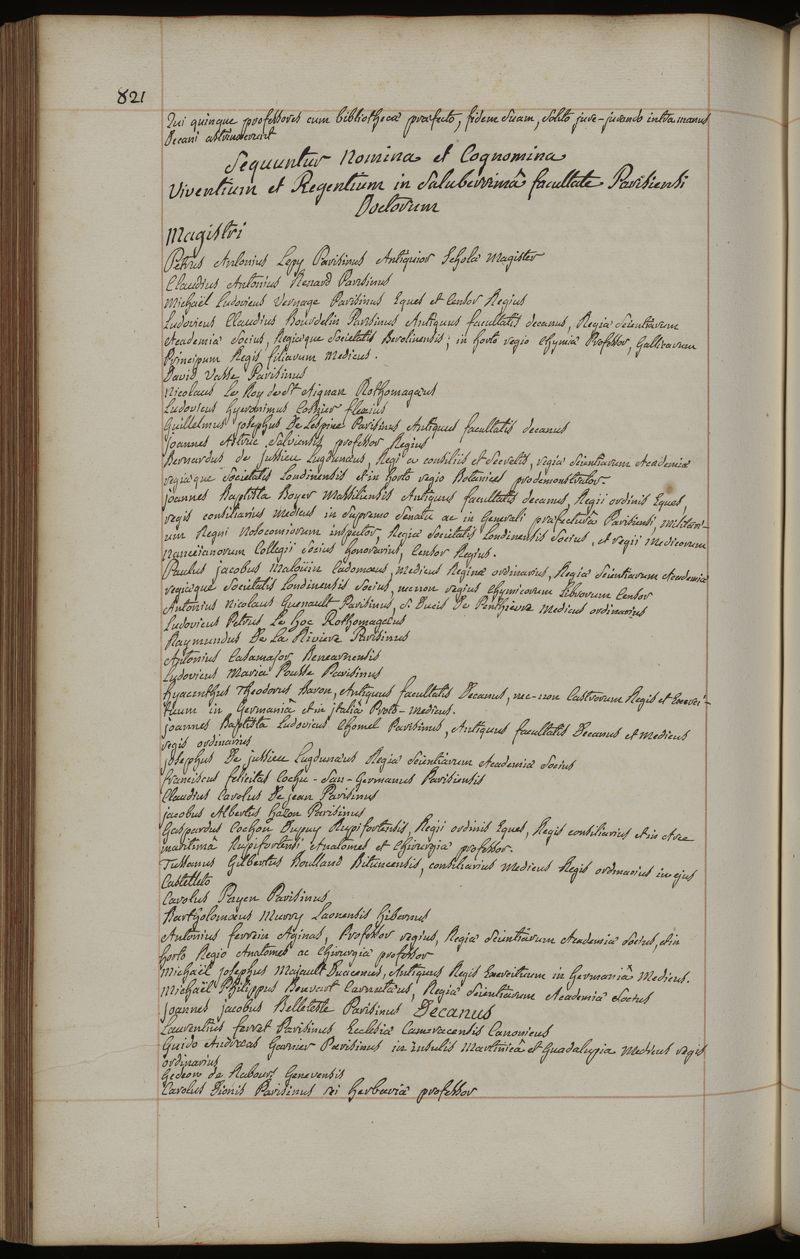 821
Qui quinque professores cum bibliothecæ præfecto, fidem suam, solito jure-jurando intra manus
Decani astrinxerunt
Sequuntur Nomina et Cognomina
Viventium et Regentium in Saluberrimâ facultate Parisiensi
Doctorum
Magistri
Petrus Antonius Lepy Parisinus Antiquior Scholæ Magister
Claudius Antonius Renard Parisinus
Michaël Ludovicus Vernage Parisinus Eques et Censor Regius
Ludovicus Claudius Bourdelin Parisinus Antiquus facultatis decanus, Regiæ Scientiarum
Academiæ Socius, Regiæque Societatis Berolinensis; in horto regio Chymiæ Professor, Gallicarum
Principum Regis filiarum Medicus.
David Vasse Parisinus
Nicolaus Le Roy de St Aignan Rothomagæus
Ludovicus Hyeronimus Cosnier flexius
Guillelmus josephus De Lespine Parisinus Antiquus facultatis decanus
Joannes Astruc Salviensis, professor Regius
Bernardus de jussieu Lugdunæus, Regi a consiliis et Secretis, regiæ Scientiarum Academiæ
regiæque Societatis Londinensis et in horto regio Botanices prodemonstrator.
joannes Baptista Boyer Massiliensis Antiquus facultatis decanus, Regii ordinis Eques,
regis consiliarius Medicus in Supremo Senatu ac in Generali præfecturâ Parisiensi, militari-
um Regni Nosocomiorum inspector, Regiæ Societatis Londinensis Socius, et regii Medicorum
Nanceianorum Collegii Socius honorarius, Censor Regius.
Paulus jacobus Maloüin Cadomæus, Medicus Reginæ ordinarius, Regiæ Scientiarum Academiæ
regiæque Societatis Londinensis Socius, necnon regius Chymicorum Librorum Censor
Antonius Nicolaus Guenault Parisinus, S. Ducis De Penthievre Medicus ordinarius
Ludovicus Petrus Le hoc Rothomagæus
Raymundus De La Riviere Parisinus
Antonius Casamajor Benearnensis
Ludovicus Maria Pousse Parisinus
Hyacinthus Theodorus Baron, Antiquus facultatis Decanus, nec-non Castrorum Regis et Exerci-
tuum in Germaniâ et in jtaliâ Proto-Medicus.
joannes Baptista Ludovicus Chomel Parisinus, Antiquus facultatis Decanus et Medicus
regis ordinarius
josephus De jussieu Lugdunæus Regiæ Scientiarum Academiæ Socius
franciscus felicitas Cochu-San-Germanus Parisiensis
Claudius Carolus De jean Parisinus
jacobus Albertus hazon Parisinus
Gaspardus Cochon Dupuy Rupifortensis, Regii ordinis Eques, Regis consiliarius et in Arce
maritimâ Rupifortensi Anatomes et Chirurgiæ professor.
Tussanus Gilbertus Boulland Bituricensis, consiliarius Medicus Regis ordinarius in ejus
Castelleto
Carolus Payen Parisinus
Bartholomæus Murry Laonensis hibernus
Antonius ferrein Aginas, Professor regius, Regiæ Scientiarum Academiæ Socius, et in
horto Regio Anatomes ac Chirurgiæ professor
Michaël josephus Majault Duacenus, Antiquus Regis Exercituum in Germaniâ Medicus.
Michaël Philippus Bouvart Carnutæus, Regiæ Scientiarum Academiæ Socius
Joannes jacobus Belleteste Parisinus Decanus
Laurentius ferret Parisinus Ecclesiæ Cameracensis Canonicus
Guido Andræas Garnier Parisinus in insulis Martinicâ et Guadalupiâ Medicus regis
ordinarius
Gedeon de Rabours Genevensis
Carolus Dionis Parisinus rei herbariæ professor